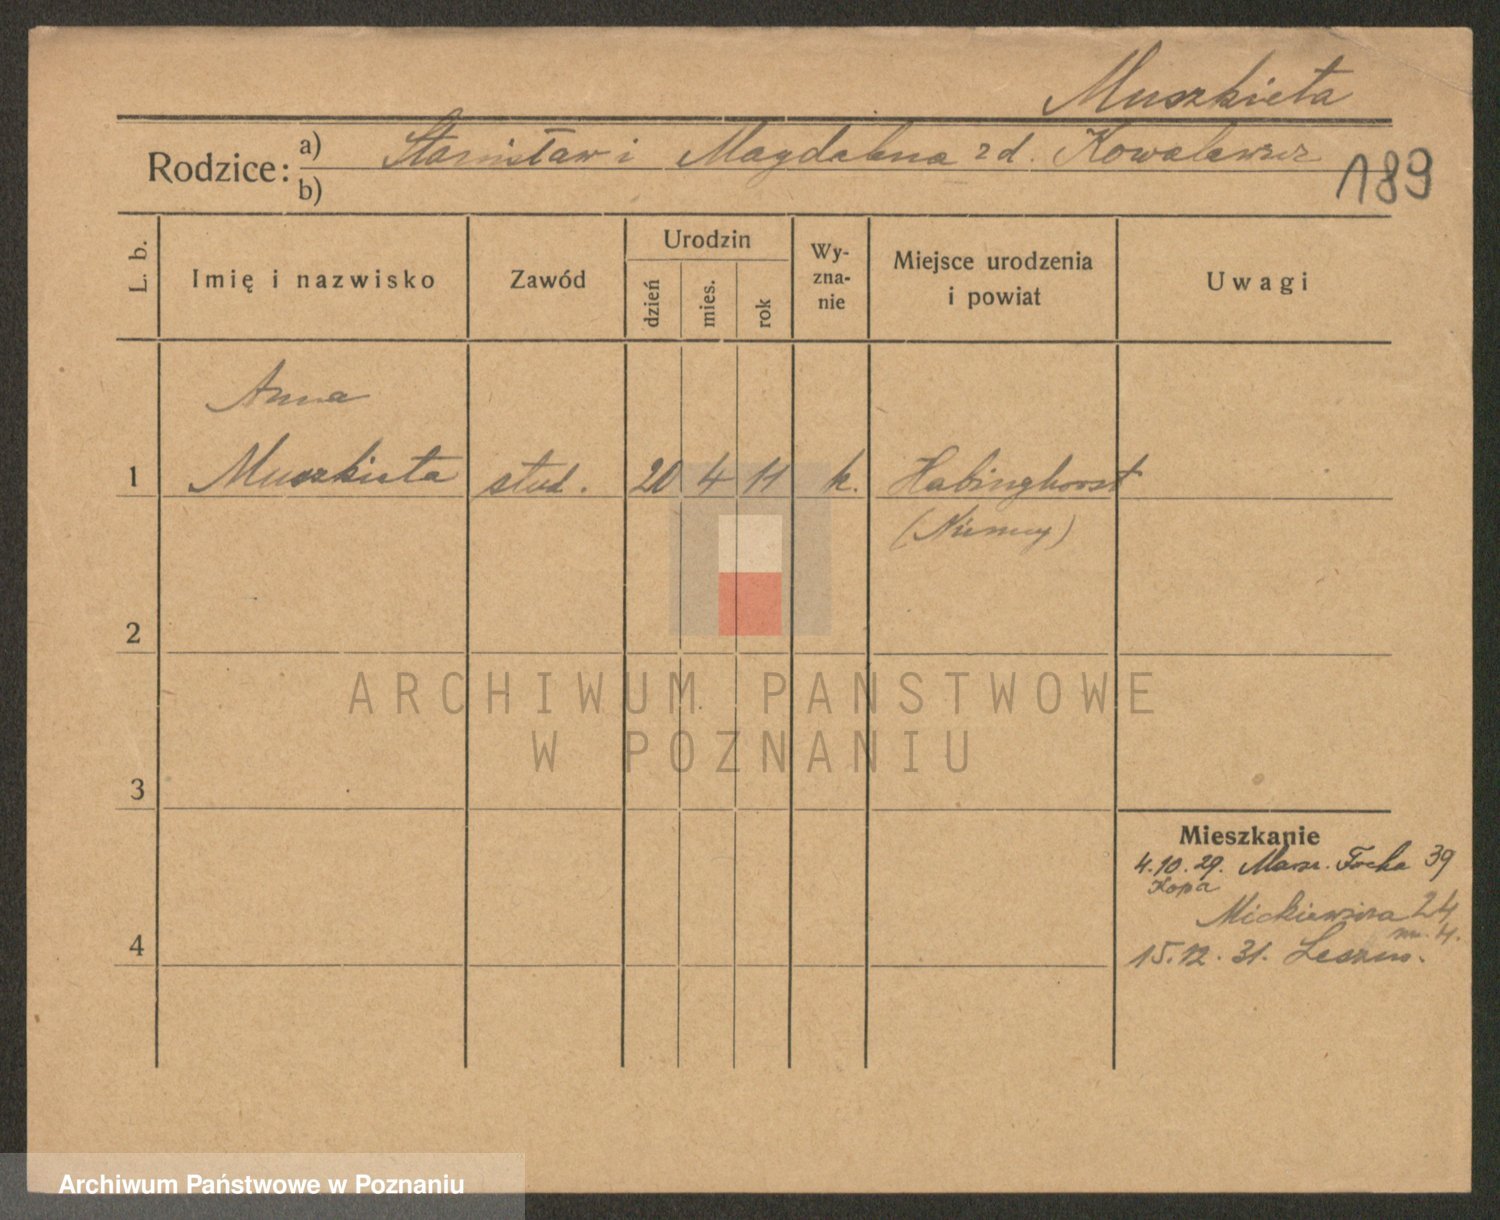 Muszkieta
Rodzice: a) Stanisław i Magdalena z d.
b)
189
L. b. Imię i nazwisko Zawód Urodzin dzień mies. rok Wy-zna-nie Miejsce urodzenia i powiat Uwagi
Anna
1 Muszkieta stud. 20 4 11 k. Habinghorst
(Niemcy)
2
ARCHIWUM PAŃSTWOWE
W POZNANIU
3
Mieszkanie
4.10.29. Marsz. Focha 39
Kopa
Mickiewicza 24
m. 4.
4 15.12.31. Leszno.
Archiwum Państwowe w Poznaniu